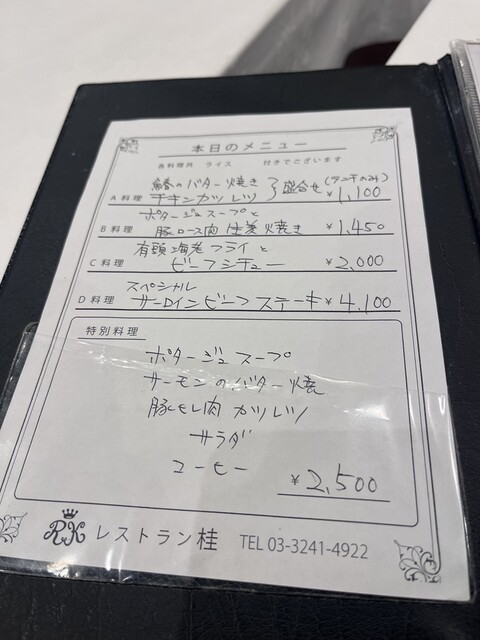 本日のメニュー
各料理共 ライス 付きでございます
鰆のバター焼き
A 料理 チキンカツレツ 盛合せ (ランチのみ) ¥1,100
ポタージュスープと
B 料理 豚ロース肉 生姜焼き ¥1,450
有頭海老フライと
C 料理 ビーフシチュー ¥2,000
スペシャル
D 料理 サーロインビーフステーキ ¥4,100
特別料理
ポタージュスープ
サーモンのバター焼
豚ヒレ肉カツレツ
サラダ
コーヒー
¥2,500
RK レストラン桂 TEL 03-3241-4922